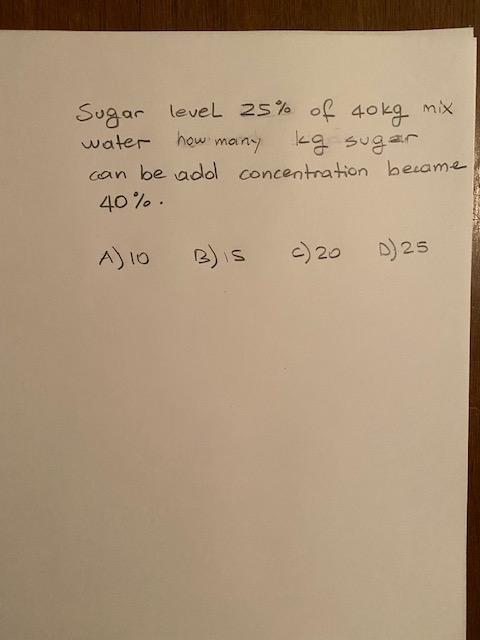 Sugar level 25% of 40kg mix
water how many kg sugar
can be add concentration became
40%.
A) 10 B) 15 C) 20 D) 25